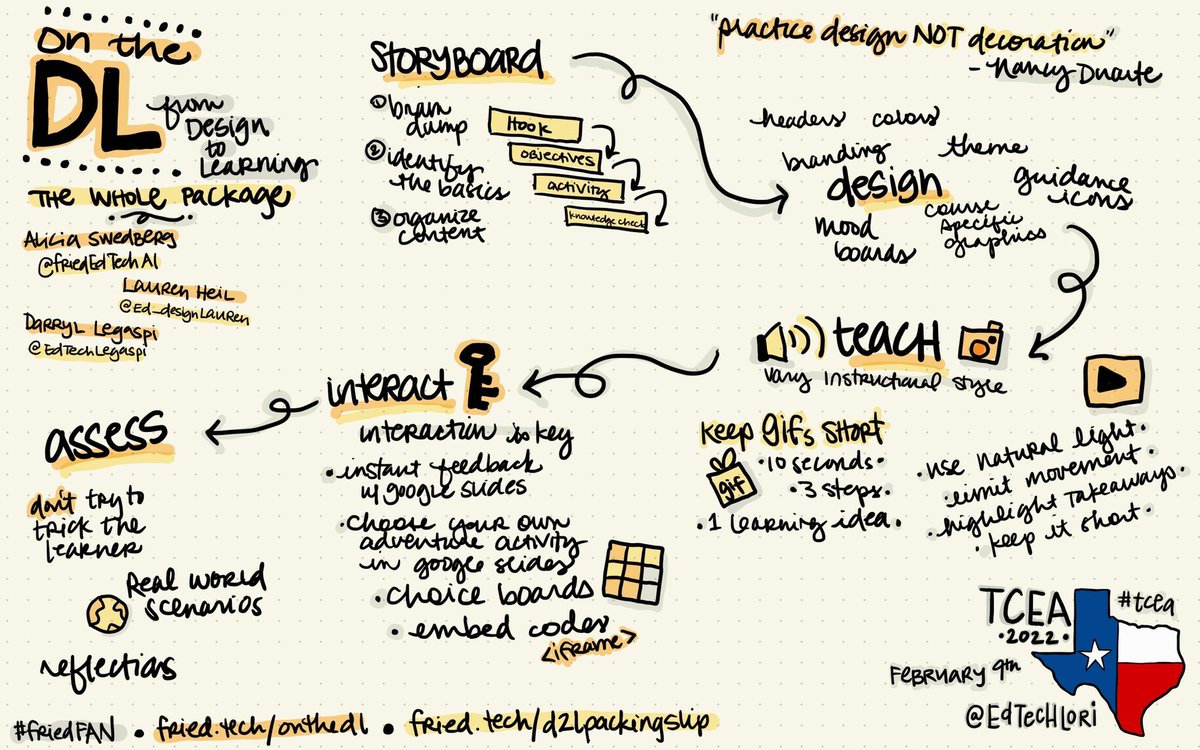 on the
DL
from
Design
to
Learning
THE WHOLE PACKAGE
Alicia Swedberg
@friedEdTechAl
Lauren Heil
@Ed_designLauren
Darryl Legaspi
@EdTechLegaspi
STORYBOARD
① brain
dump
② identify
the basics
③ organize
content
Hook
objectives
activity
knowledge check
"practice design NOT decoration"
- Nancy Duarte
headers colors
branding theme
design
guidance
icons
mood
boards
course
specific
graphics
teach
vary instructional style
keep gifs short
gif
• 10 seconds •
• 3 steps •
• 1 learning idea •
• use natural light •
• limit movement •
• highlight takeaways •
• keep it short •
interact
interaction is key
• instant feedback
w/ google slides
• choose your own
adventure activity
in google slides
• choice boards
• embed codes
<iframe>
assess
don't try to
trick the
learner
Real world
scenarios
reflections
TCEA
• 2022 •
#tcea
February 9th
@EdTechLori
#friedFAN • fried.tech/onthedl • fried.tech/d2lpackingslip